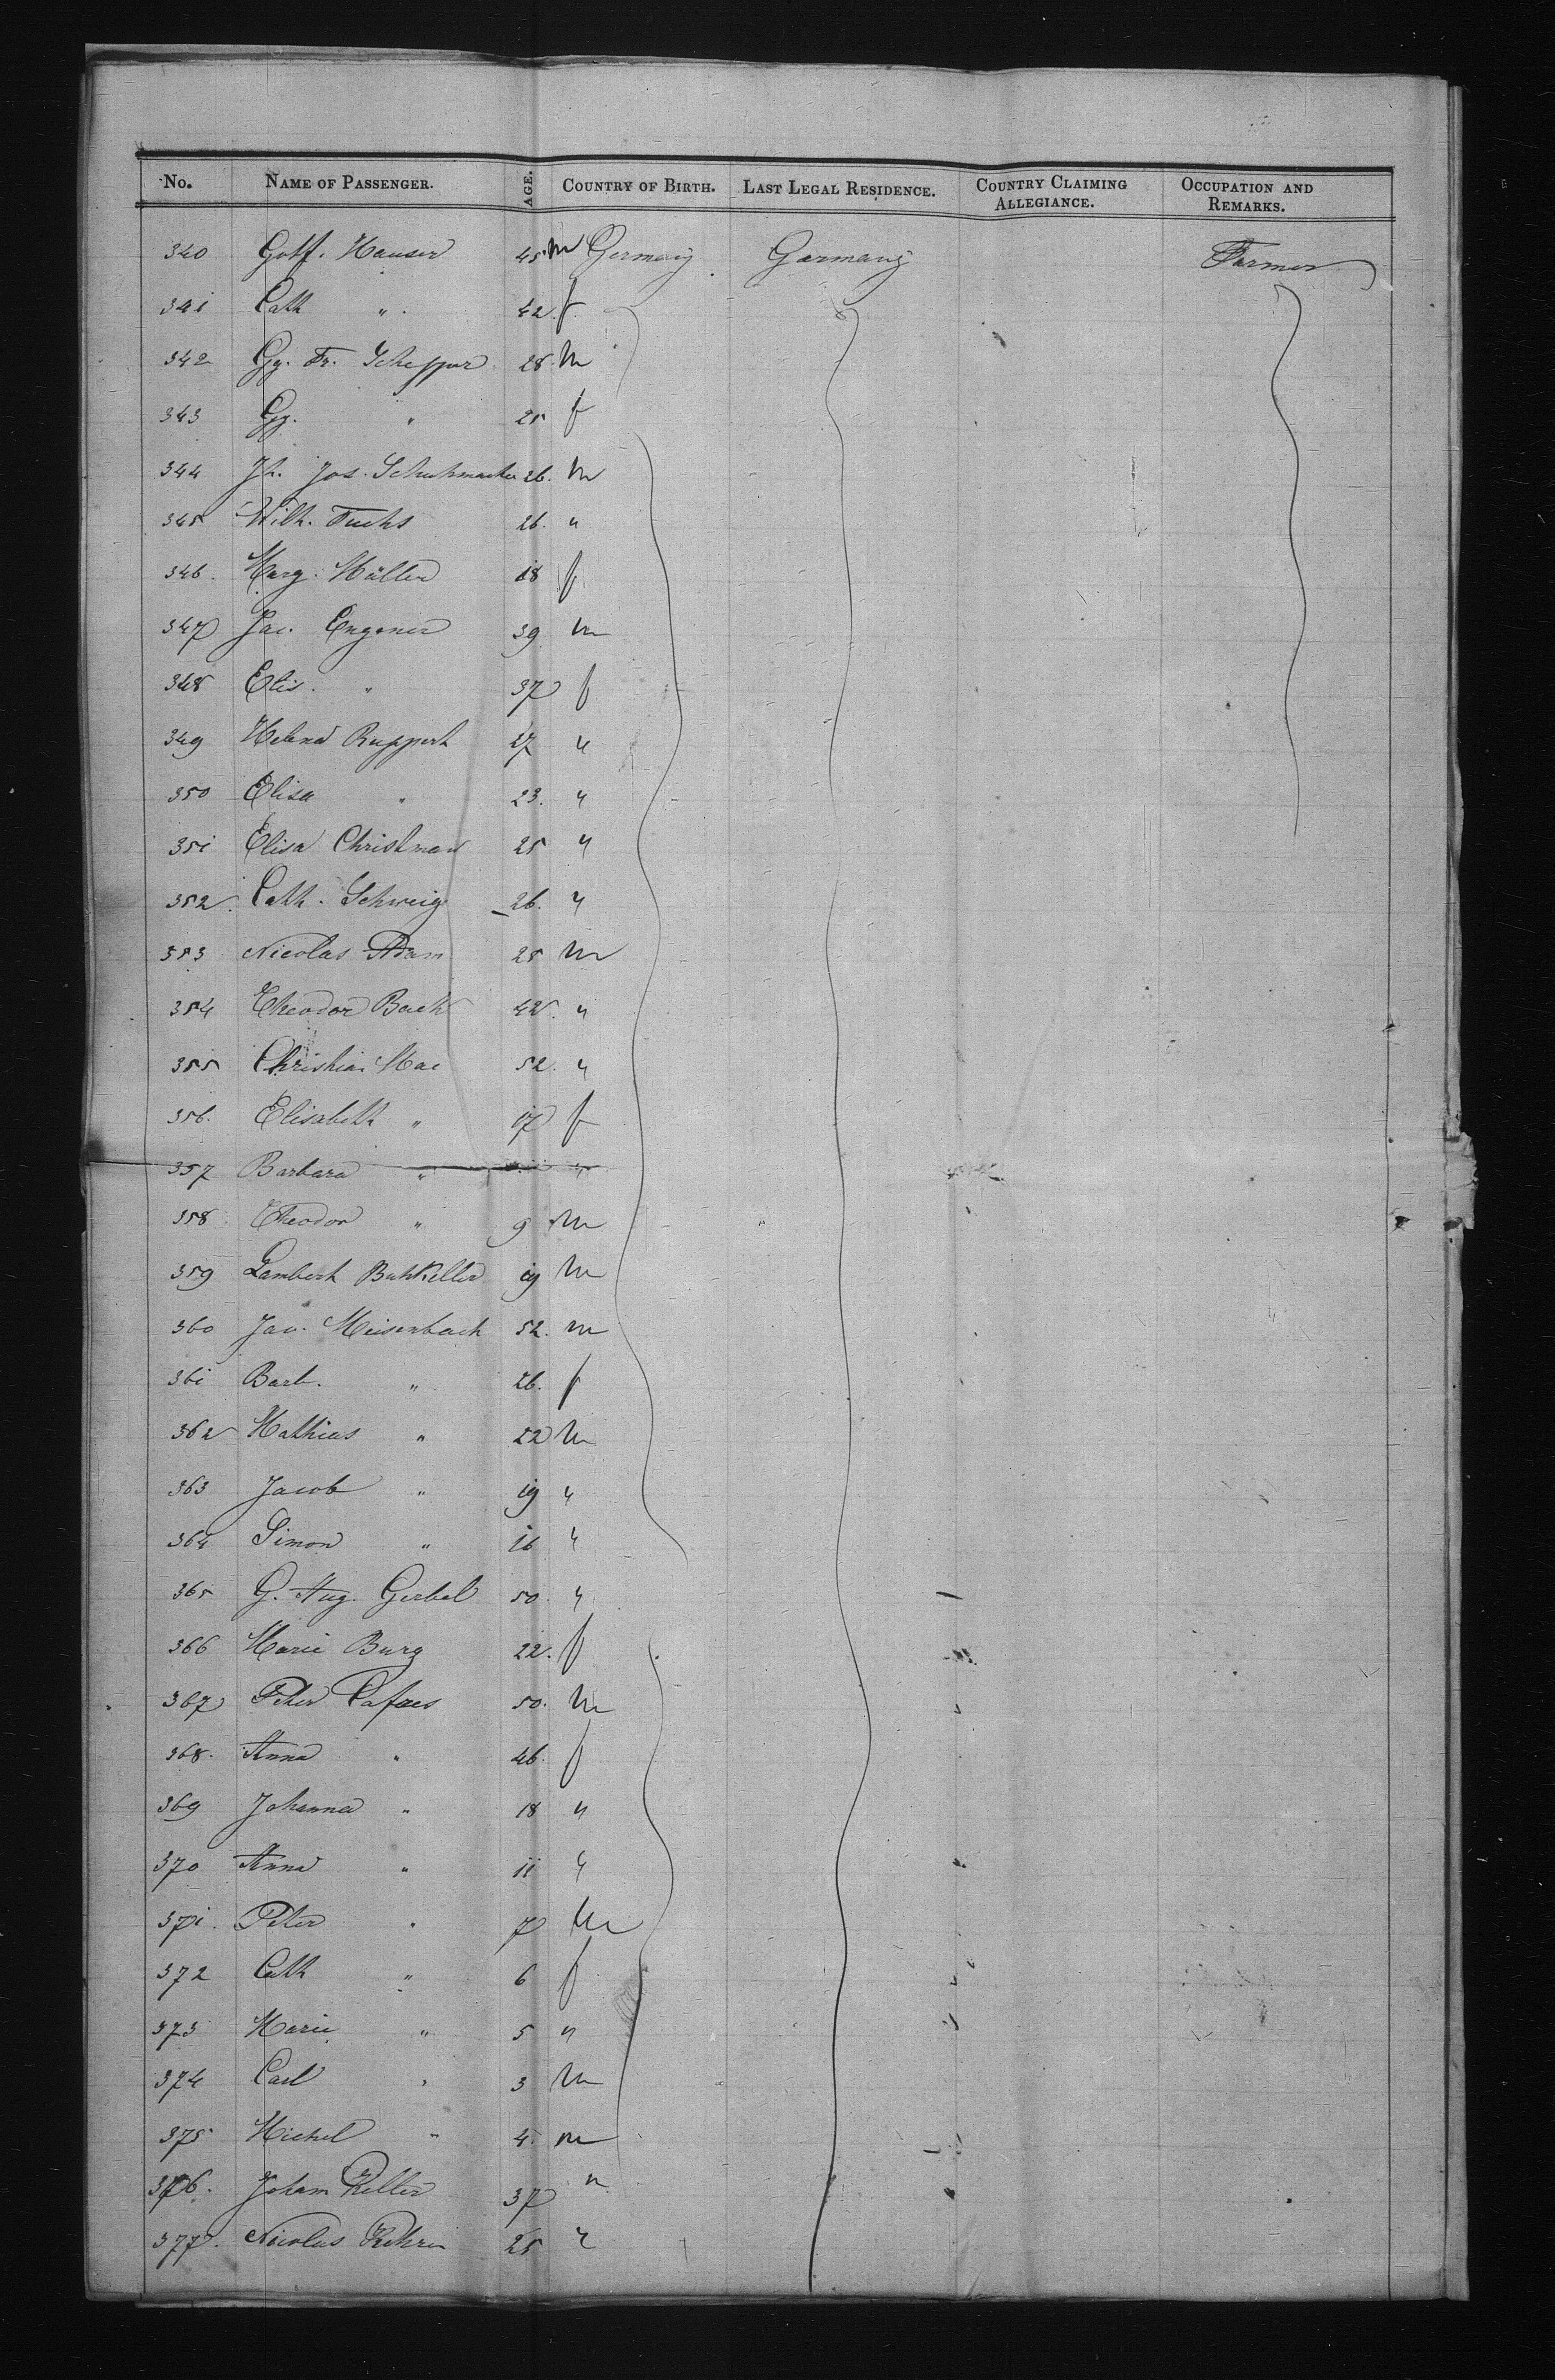 No. NAME OF PASSENGER. AGE. COUNTRY OF BIRTH. LAST LEGAL RESIDENCE. COUNTRY CLAIMING ALLEGIANCE. OCCUPATION AND REMARKS.
340 Gottf. Hauser 45 m Germany Germany Farmer
341 Cath " 42. f
342 Gg. Fr. Schepper 28. m
343 Gg. " 25 f
344 Jh. Jos. Schuhmacher 26. m
345 Wilh. Fuchs 26. "
346. Marg. Müller 18 f
347 Jac. Engener 39 m
348 Elis. " 37 f
349 Helena Ruppert 27 "
350 Elisa " 23. "
351 Elisa Christman 25 "
352. Cath. Schweig 26. "
353 Nicolas Adam 25 m
354 Theodor Bach 42. "
355 Christian Mae 52. "
356. Elisabeth " 17 f
357 Barbara " "
358. Theodor " 9 m
359 Lambert Buhkeller 19 m
360 Jac. Meisenbach 52. m
361 Barb. " 26. f
362 Mathias " 22 m
363 Jacob " 19 "
364 Simon " 16 "
365 G. Aug. Gerbel 50. "
366 Marie Burg 22. f
367 Peter Cafaes 50. m
368. Anna " 46. f
369 Johanna " 18 "
370 Anna " 11 "
371. Peter " 7 m
372 Cath " 6 f
373 Marie " 5 "
374 Carl " 3 m
375 Michel " 4. m
376. Joham Keller 37 "
377. Nicolas 25 "